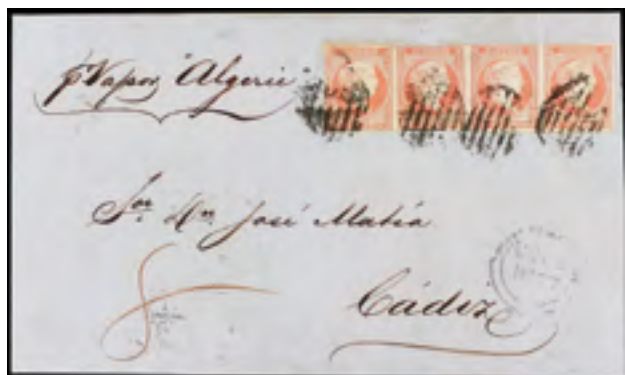 pr Vapor "Algerie"
Sor. Dn. José Matía
Cádiz